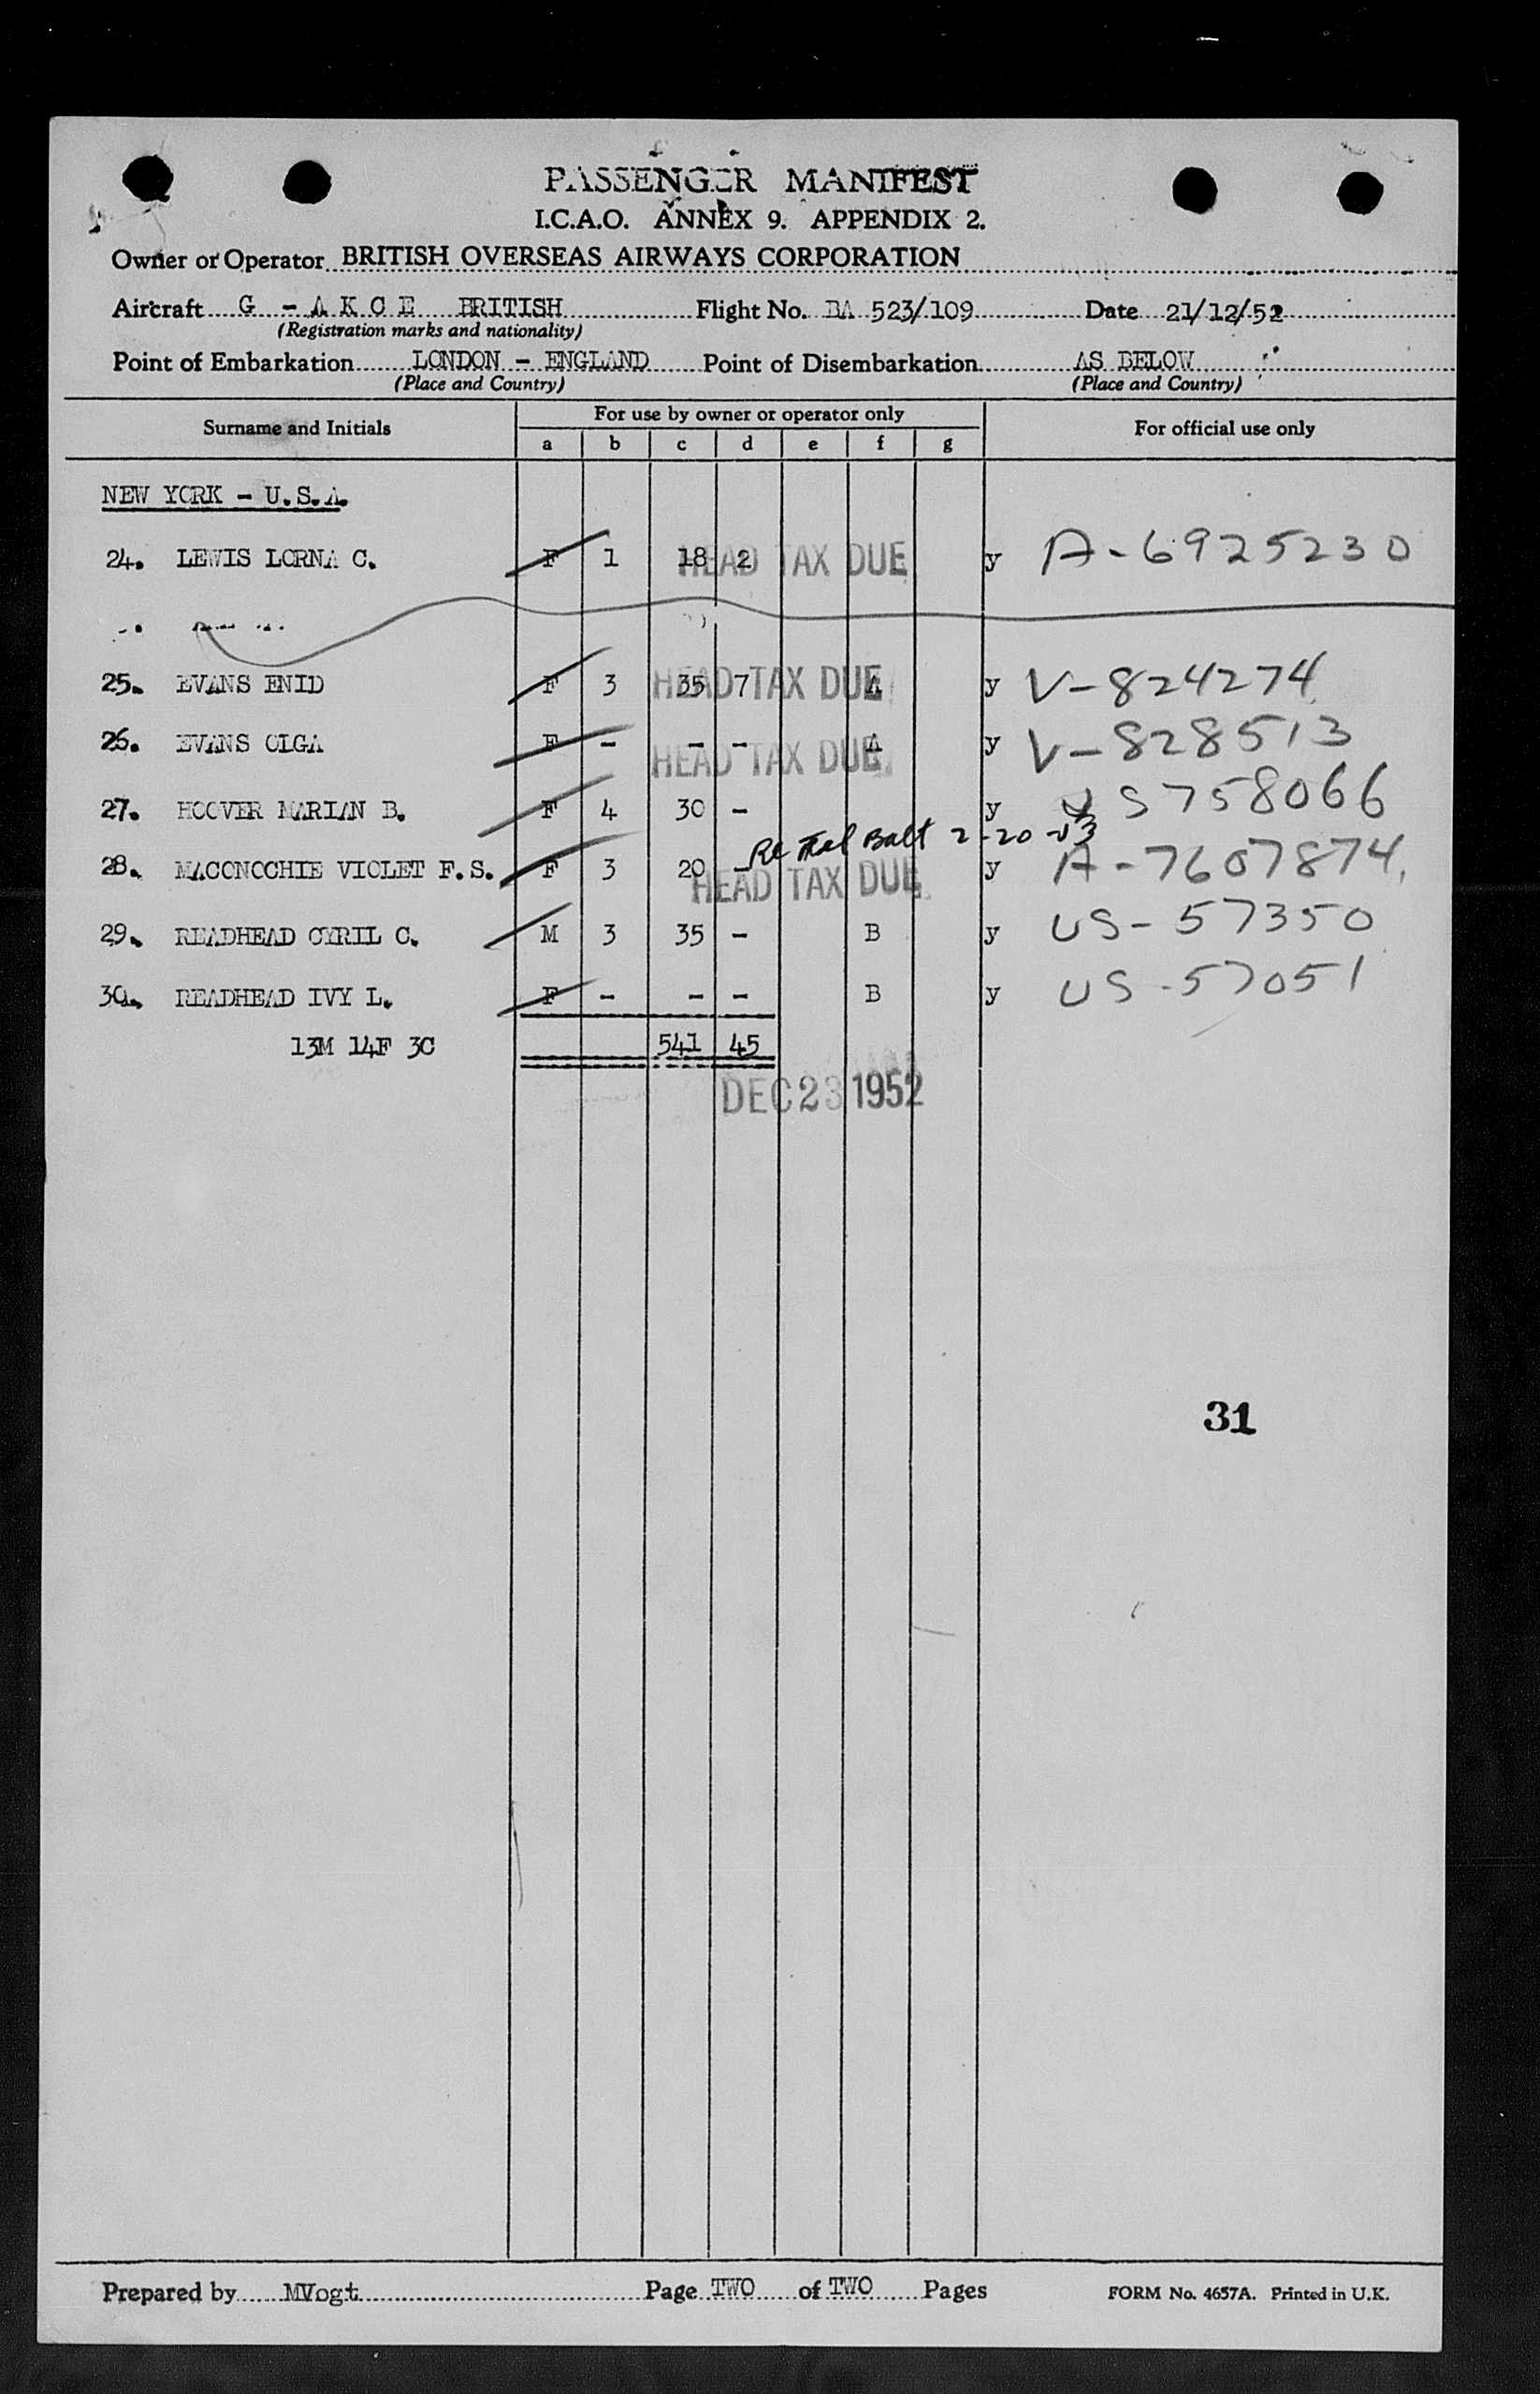 PASSENGER MANIFEST
I.C.A.O. ANNEX 9. APPENDIX 2.
Owner or Operator BRITISH OVERSEAS AIRWAYS CORPORATION
Aircraft G - A K C E BRITISH Flight No. BA 523/109 Date 21/12/52
(Registration marks and nationality)
Point of Embarkation LONDON - ENGLAND Point of Disembarkation AS BELOW
(Place and Country) (Place and Country)
Surname and Initials For use by owner or operator only For official use only
a b c d e f g
NEW YORK - U.S.A.
24. LEWIS LORNA C. F 1 18 2 HEAD TAX DUE y A-6925230
25. EVANS ENID F 3 35 7 HEAD TAX DUE A y V-824274
26. EVANS OLGA F - - - HEAD TAX DUE A y V-828513
27. HOOVER MARIAN B. F 4 30 - y US758066
Balt 2-20-53
28. MACONOCHIE VIOLET F.S. F 3 20 - HEAD TAX DUE y A-7607874
29. READHEAD CYRIL C. M 3 35 - B y US-57350
30. READHEAD IVY L. F - - - B y US-57051
13M 14F 3C 541 45
DEC 23 1952
31
Prepared by MVogt Page TWO of TWO Pages FORM No. 4657A. Printed in U.K.